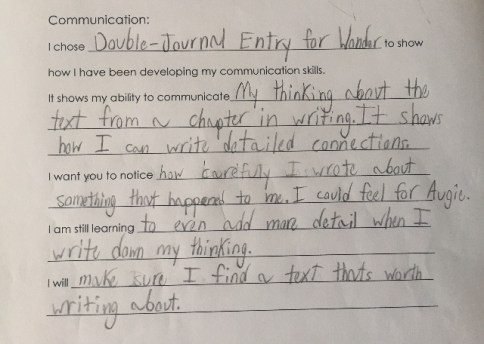 Communication:
I chose Double-Journal Entry for Wonder to show
how I have been developing my communication skills.
It shows my ability to communicate My thinking about the
text from a chapter in writing. It shows
how I can write detailed connections.
I want you to notice how carefuly I wrote about
something that happened to me. I could feel for Augie.
I am still learning to even add more detail when I
write down my thinking.
I will make sure I find a text thats worth
writing about.